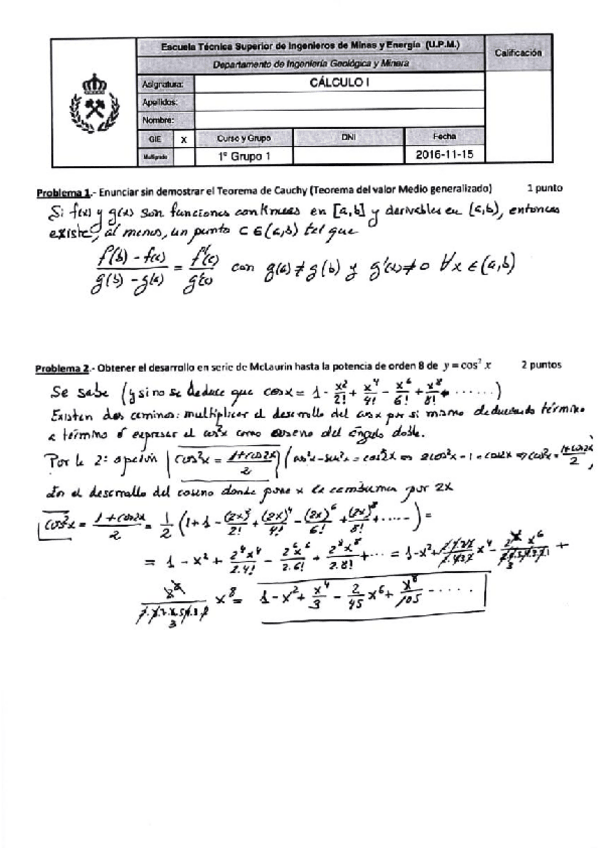 Escuela Técnica Superior de Ingenieros de Minas y Energía (U.P.M.)
Calificación
Departamento de Ingeniería Geológica y Minera
Asignatura: CÁLCULO I
Apellidos:
Nombre:
GIE X Curso y Grupo DNI Fecha
1º Grupo 1 2016-11-15
Problema 1.- Enunciar sin demostrar el Teorema de Cauchy (Teorema del valor Medio generalizado) 1 punto
Si f(x) y g(x) son funciones continuas en [a,b] y derivables en (a,b), entonces
existe, al menos, un punto c ∈ (a,b) tal que
(f(b) - f(a))/(g(b) - g(a)) = f'(c)/g'(c) con g(a) ≠ g(b) y g'(x) ≠ 0 ∀x ∈ (a,b)
Problema 2.- Obtener el desarrollo en serie de McLaurin hasta la potencia de orden 8 de y = cos² x 2 puntos
Se sabe (y si no se deduce que cos x = 1 - x²/2! + x⁴/4! - x⁶/6! + x⁸/8! + ......)
Existen dos caminos: multiplicar el desarrollo del cos x por si mismo deduciendo término
a término o expresar el cos²x como coseno del ángulo doble.
Por la 2ª opción cos²x = (1+cos2x)/2 (cos²x - sen²x = cos2x ⇒ 2cos²x - 1 = cos2x ⇒ cos²x = (1+cos2x)/2,
En el desarrollo del coseno donde pone x la cambiamos por 2x
cos²x = (1+cos2x)/2 = 1/2 (1+1 - (2x)²/2! + (2x)⁴/4! - (2x)⁶/6! + (2x)⁸/8! + .....) =
= 1 - x² + 2⁴x⁴/2.4! - 2⁶x⁶/2.6! + 2⁸x⁸/2.8! + ... = 1 - x² + x⁴ - x⁶ +
x⁸ = 1 - x² + x⁴/3 - 2/45 x⁶ + x⁸/105 .....